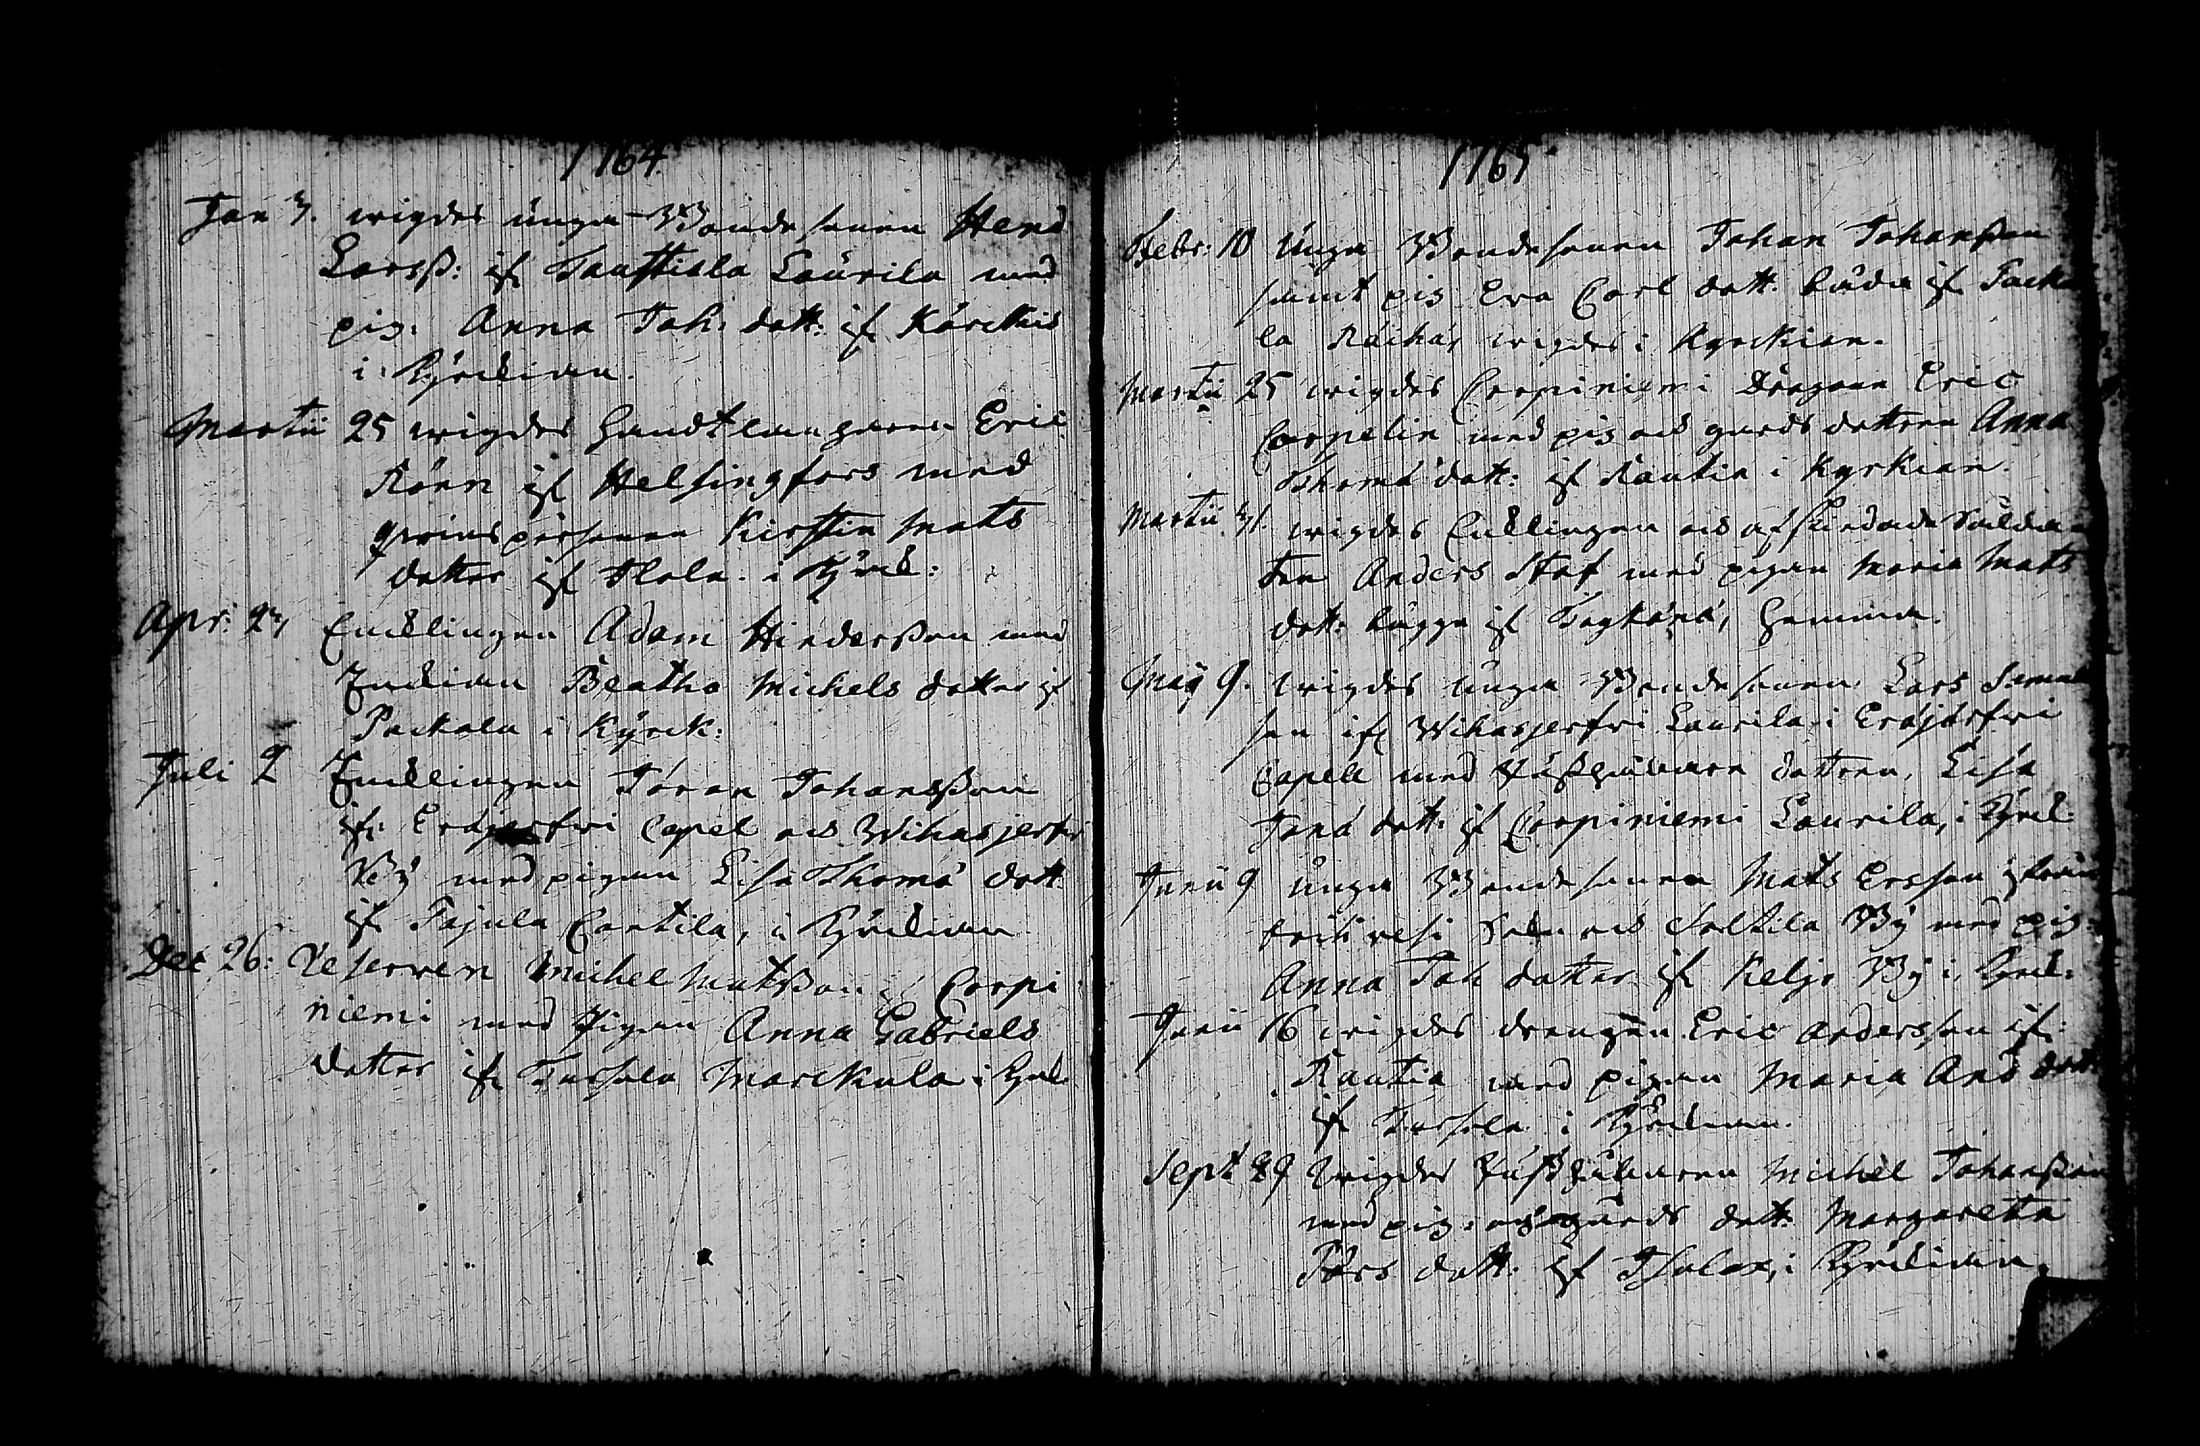 1764
Jan 3. wigdes unga Bondesonen Hend
Larsß: if Tauftiala Laurila med
pig: Anna Joh: dott: if Kärckis
i Kyrckian.
Martii 25 wigdes handtlangaren Eric
Rönn if Helsingfors med
qwins pärsonen Kirstin Mats
dotter if Alala i Kyrck:
Apr: 23 Encklingen Adam Hindersßon med
Enckian Beatha Michels dotter if
Packala i Kyrck:
Juli 2 Encklingen Jöran Johansßon
if: Eräjerfwi Capel och Wihasjerfwi
By med pigan Lisa Thoma dott
if Pajula Cartila, i Kyrckian
Dec 26: Reserven Michel Matsßon if Corpi
niemi med Pigan Anna Gabriels
dotter if Tursola Marckula i Kyrck
1765
Febr: 10 Unga Bondesonen Johan Johansßon
samt pig Eva Carl dott. båda if Packa
la Räikä, wigdes i Kyrckian.
Martii 25 wigdes Corpiniemi Dragoun Eric
Corpelin med pig och gårds dottren Anna
Thoma dott: if Rautia i Kyrkian.
Martii 31. wigdes Encklingen och afskedade Solda
ten Anders Staf med pigan Maria Mats
dott. bägge if hemma.
Maij 9. wigdes unga Bondesonen Lars Samuel
son if Wihasjerfwi Laurila i Eräjärfwi
Capell med dottren, Lisa
dott: if Corpiniemi Laurila, i Kyrck:
Junii 9 unga Bondesonen Mats Ersson ifrån
By med pig:
Anna Joh dotter if Keljo By i Kyrck:
Junii 16 wigdes drengen Eric Andersson if:
Rautia med pigan Maria And dott
if Tursola i Kyrckian.
Sept 29 wigdes Michel Johansßon
med pig: och gårds dott: Margareta
dott: if i Kyrckian.